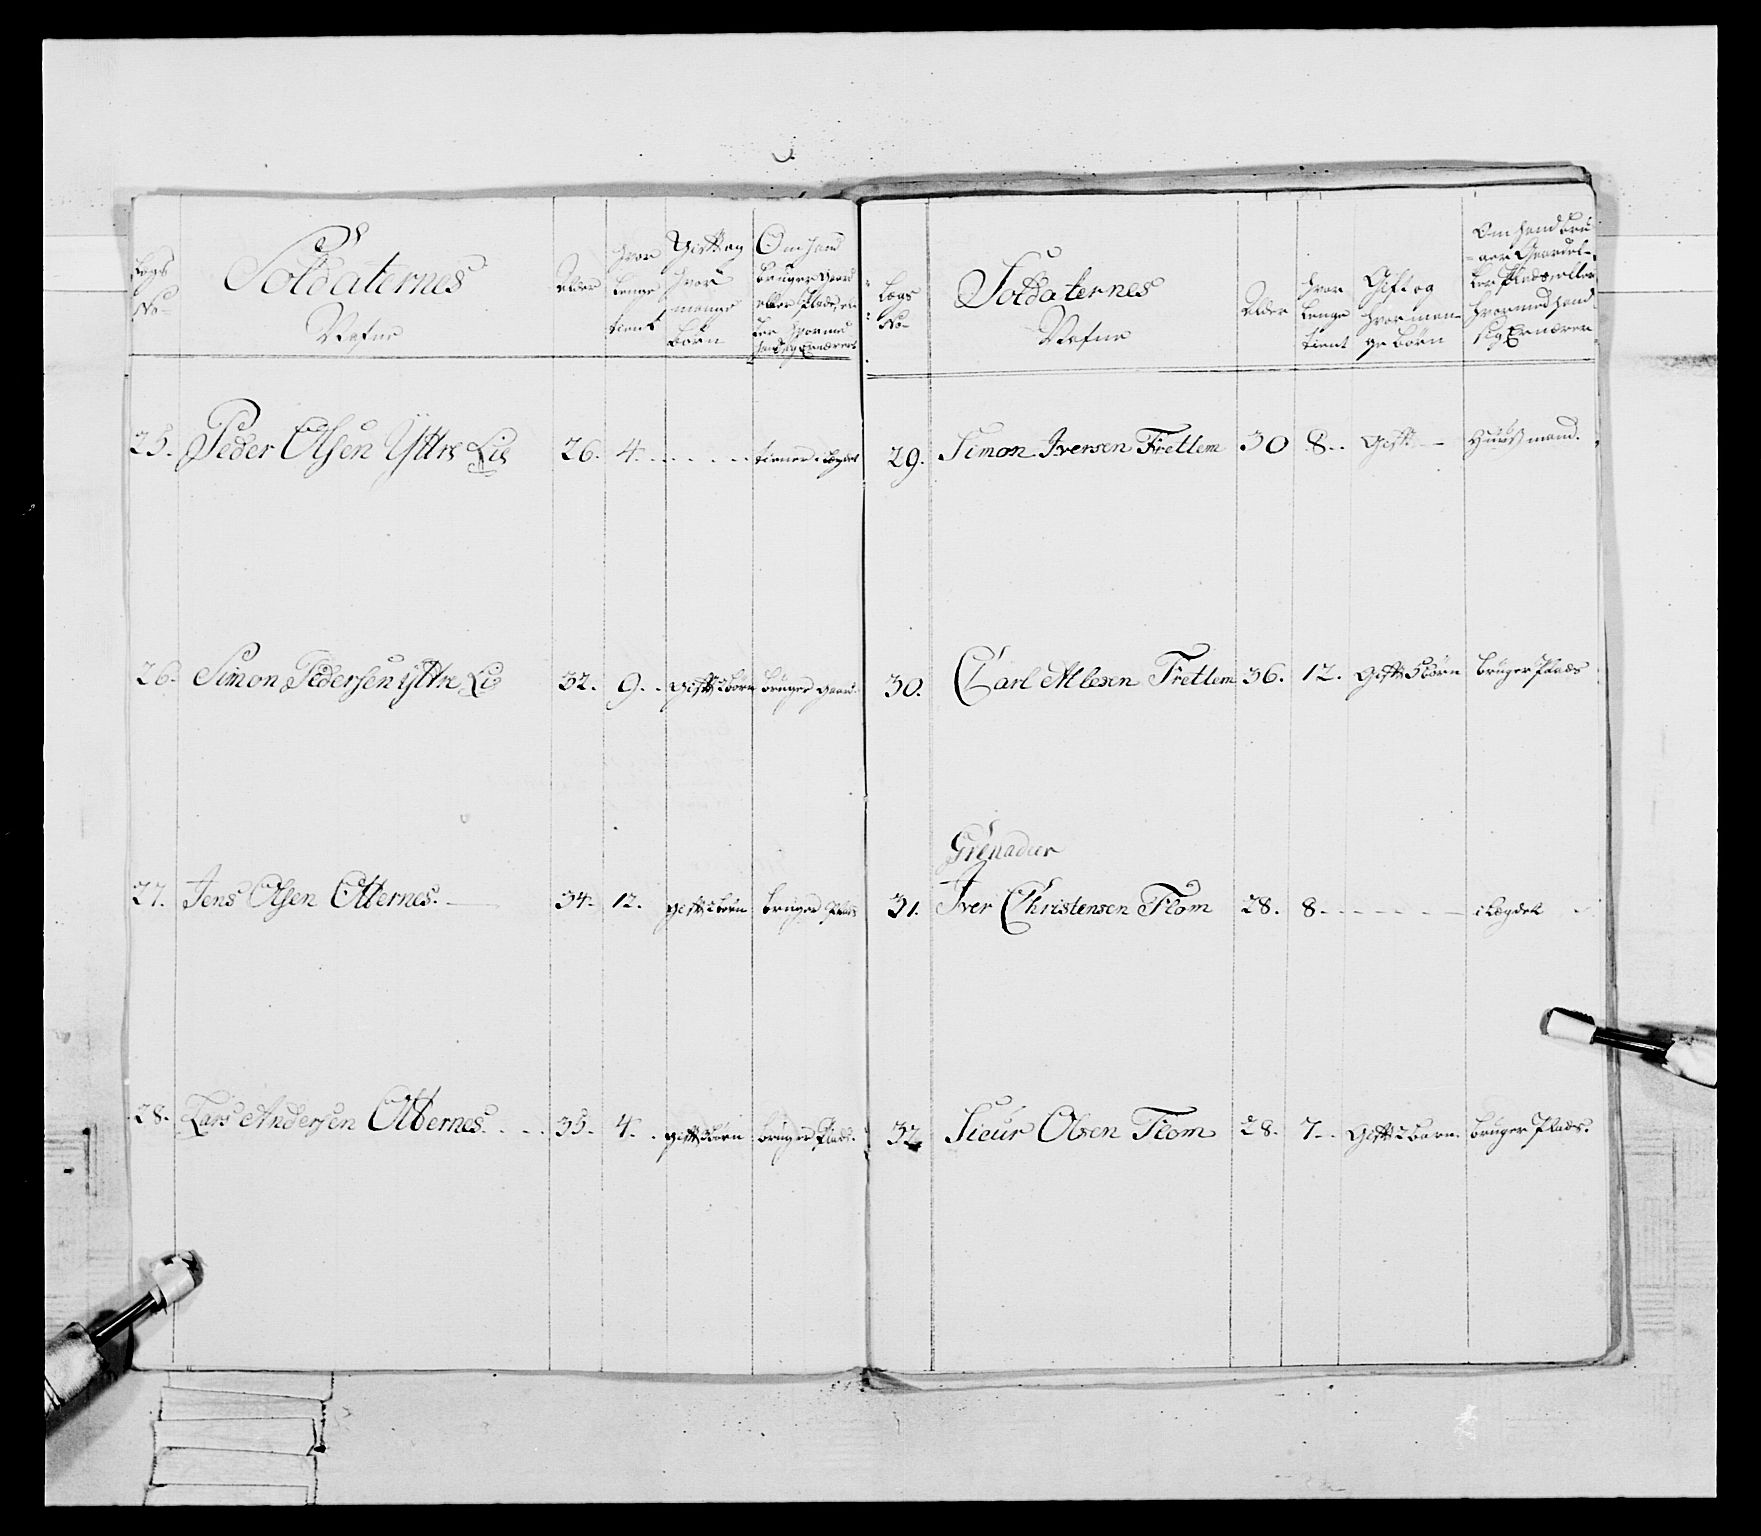 Lægs No
Soldaternes Nafne
Alder
hvor lenge tient
Gift og hvor mange børn
Om hand bruger gaard eller Plads, el-
ler hvormed hand sig Ernærer
25. Peder Olsen Yttre Lie 26. 4. tiener i Lægdet
26. Simon Pedersen yttre Lie 32. 9. Gift 2 børn bruger gaard
27. Jens Olsen Otternes. 34. 12. gift 2 børn bruger Plads
28. Lars Andersen Otternes. 35. 4. gift børn bruger Plads.
Lægs No
Soldaternes Nafne
Alder
hvor lenge tient
Gift og hvor man-
ge børn
Om hand bru-
ger Gaard el-
ler Plads eller
hvormed hand
sig Ernærer
29. Simon Iversen Fretlem 30 8. Gift Huusmand.
30. Carl Fretlem 36. 12. Gift 5 børn bruger Plads
Grenadeer
31. Iver Christensen Flom 28. 8 i Lægdet
32 Sieur Olsen Flom 28. 7. Gift 2 børn. bruger Plads.